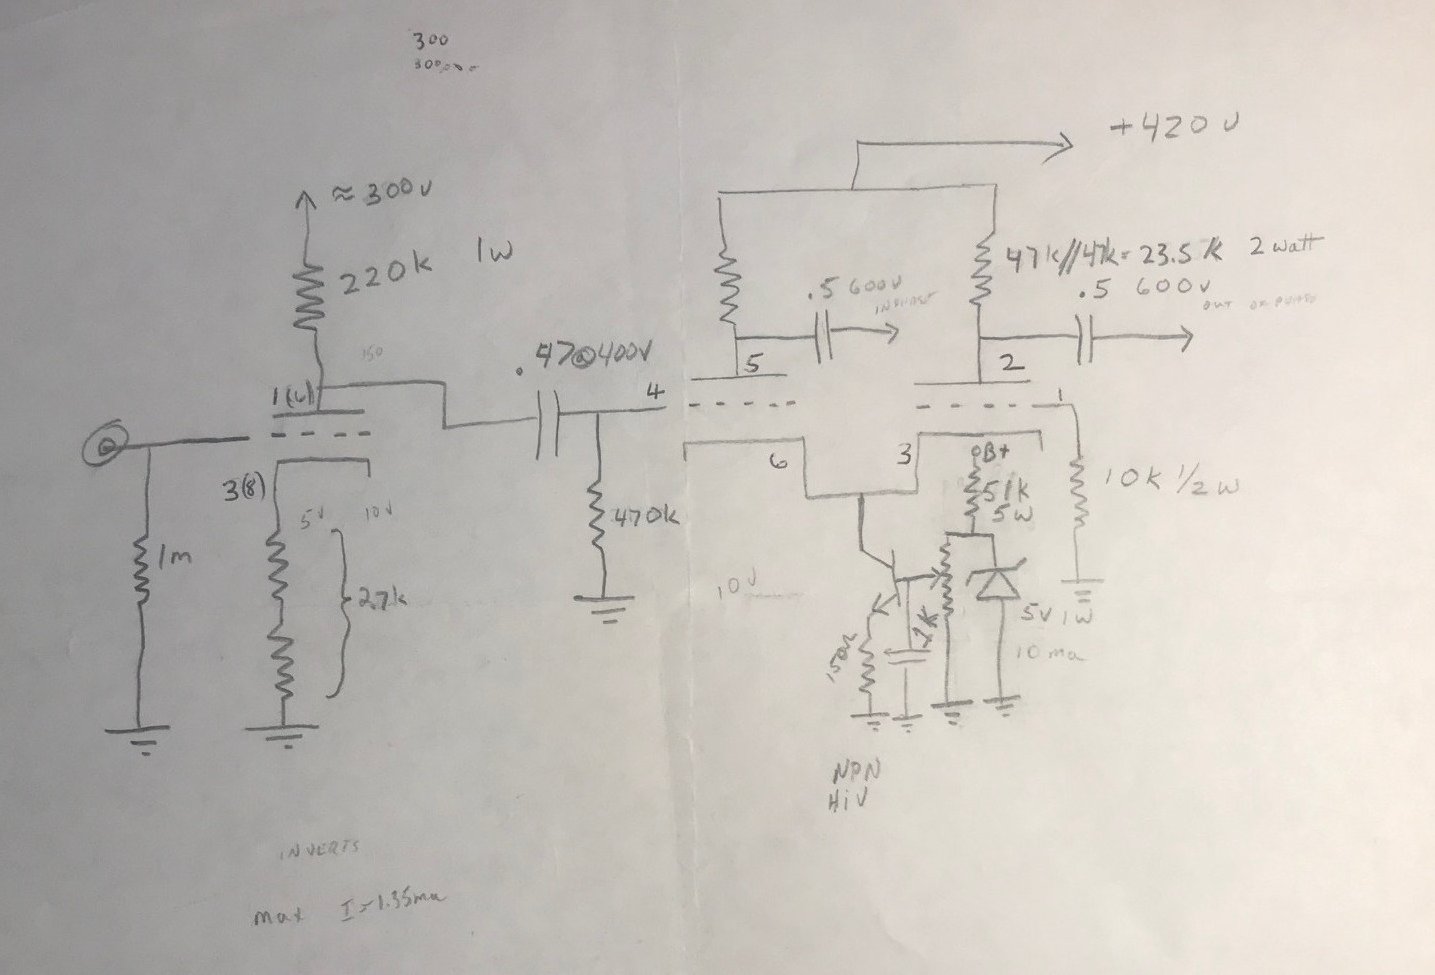 300
300,000
+420V
≈300V
220K 1W
47K//47K=23.5K 2watt
.5 600V
.5 600V
OUT OF PHASE
150
.47@400V
5
2
1(6)
4
1
6
3
B+
3(8)
51K
5W
10K 1/2W
5V 10V
470K
1m
2.7k
10V
1K
5V 1W
10ma
NPN
HiV
INVERTS
max I=1.35ma